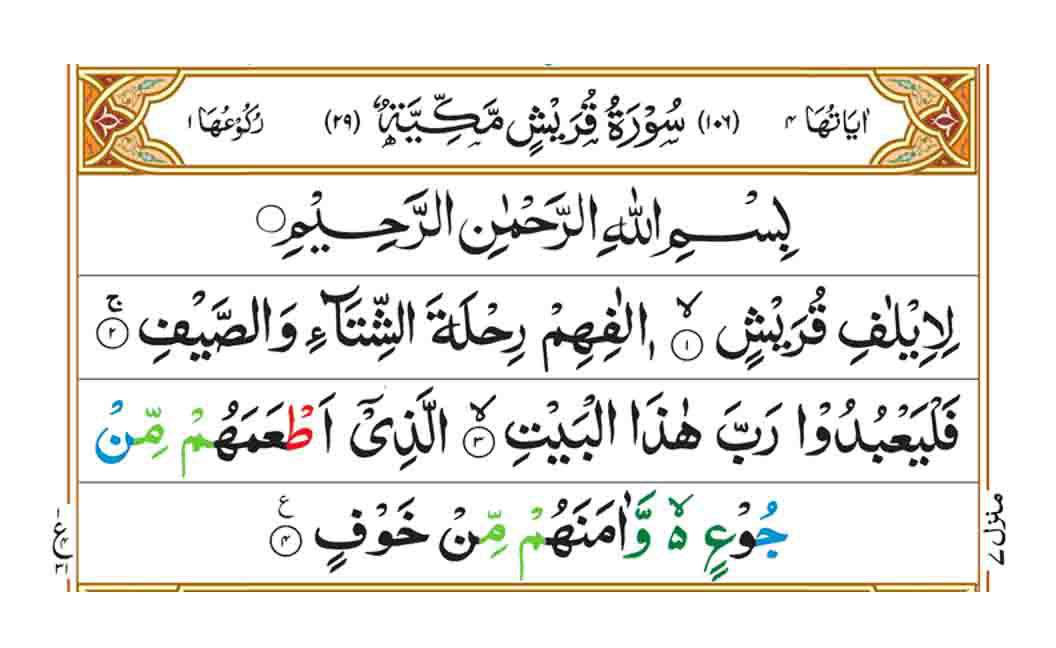 اٰيَاتُهَا ۴ (۱۰۶) سُوْرَةُ قُرَيْشٍ مَّكِّيَّةٌ (۲۹) رُكُوْعُهَا ۱
بِسْمِ اللهِ الرَّحْمٰنِ الرَّحِيْمِ ○
لِاِيْلٰفِ قُرَيْشٍ ۙ‏ ۱ اٖلٰفِهِمْ رِحْلَةَ الشِّتَآءِ وَالصَّيْفِ‌ ۚ‏ ۲
فَلْيَعْبُدُوْا رَبَّ هٰذَا الْبَيْتِ ۙ‏ ۳ الَّذِىْۤ اَطْعَمَهُمْ مِّنْ
جُوْعٍ ۙ ۵ وَّاٰمَنَهُمْ مِّنْ خَوْفٍ ۴ ع
منزل ۷
۱ ع ۴ ۳۱